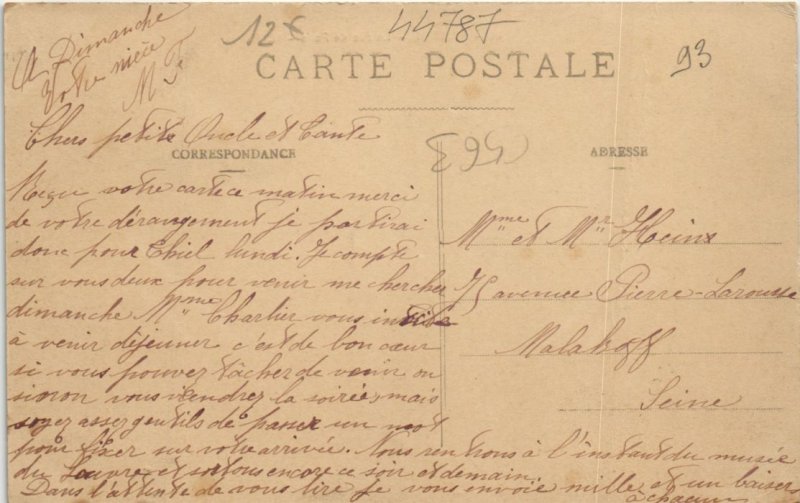 A Dimanche
Votre nièce
M. F.
12€
44787
93
CARTE POSTALE
Chers petits Oncle et Tante
CORRESPONDANCE
ADRESSE
Reçu votre carte ce matin merci
de votre dérangement je partirai
donc pour Thiel lundi. Je compte
sur vous deux pour venir me chercher
dimanche Mme Charlier vous invite
à venir déjeuner c'est de bon cœur
si vous pouvez tâcher de venir ou
sinon vous viendrez la soirée, mais
soyez assez gentils de passer un mot
pour fixer sur votre arrivée. Nous rentrons à l'instant du musée
du Louvre et sortons encore ce soir et demain.
Dans l'attente de vous lire je vous envoie mille et un baiser
à chacun
Mme et Mr Heinx
75 avenue Pierre-Larousse
Malakoff
Seine